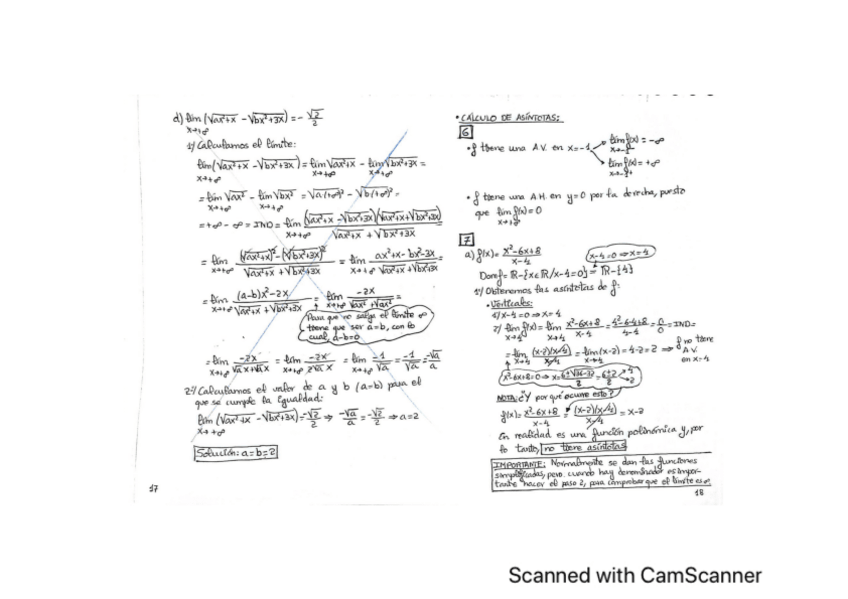 d) lim (√ax²+x - √bx²+3x) = - √2/2
x→+∞
1º/ Calculamos el límite:
lim (√ax²+x - √bx²+3x) = lim √ax²+x - lim √bx²+3x =
x→+∞ x→+∞ x→+∞
= lim √ax² - lim √bx² = √a(+∞)² - √b(+∞)² =
x→+∞ x→+∞
= +∞ - ∞ = IND = lim (√ax²+x - √bx²+3x)(√ax²+x + √bx²+3x)
x→+∞ √ax²+x + √bx²+3x
= lim (√ax²+x)² - (√bx²+3x)² = lim ax²+x - bx²-3x
x→+∞ √ax²+x + √bx²+3x x→+∞ √ax²+x + √bx²+3x
= lim (a-b)x²-2x = lim -2x =
x→+∞ √ax²+x + √bx²+3x x→+∞ √ax² + √ax²
Para que no salga el límite ∞
tiene que ser a=b, con lo
cual, a-b=0
= lim -2x = lim -2x = lim -1 = -1 = -√a
x→+∞ √a x+√a x x→+∞ 2√a x x→+∞ √a √a a
2º/ Calculamos el valor de a y b (a=b) para el
que se cumple la igualdad:
lim (√ax²+x - √bx²+3x) = -√2/2 ⇒ -√a/a = -√2/2 ⇒ a=2
x→+∞
Solución: a=b=2
17
• CÁLCULO DE ASÍNTOTAS:
6
• f tiene una A.V. en x=-1
lim f(x) = -∞
lim f(x) = +∞
• f tiene una A.H. en y=0 por la derecha, puesto
que lim f(x)=0
x→+∞
7
a) f(x)= x²-6x+8 / x-4
x-4=0 ⇒ x=4
Dom f = ℝ-{x∈ℝ/x-4=0} = ℝ-{4}
1º/ Obtenemos las asíntotas de f:
• Verticales:
1/ x-4=0 ⇒ x=4
2/ lim f(x) = lim x²-6x+8 / x-4 = 4²-6·4+8 / 4-4 = 0/0 = IND =
x→4 x→4
= lim (x-2)(x-4) / x-4 = lim (x-2) = 4-2 = 2 ⇒ f no tiene
A.V.
en x=4
x²-6x+8=0 ⇒ x= 6±√36-32 / 2 = 6±2 / 2 4 2
NOTA: ¿Y por qué ocurre esto?
f(x)= x²-6x+8 / x-4 = (x-2)(x-4) / x-4 = x-2
En realidad es una función polinómica y, por
lo tanto, no tiene asíntotas
IMPORTANTE: Normalmente se dan las funciones
simplificadas, pero cuando hay denominador es impor-
tante hacer el paso 2, para comprobar que el límite es ∞
18
Scanned with CamScanner